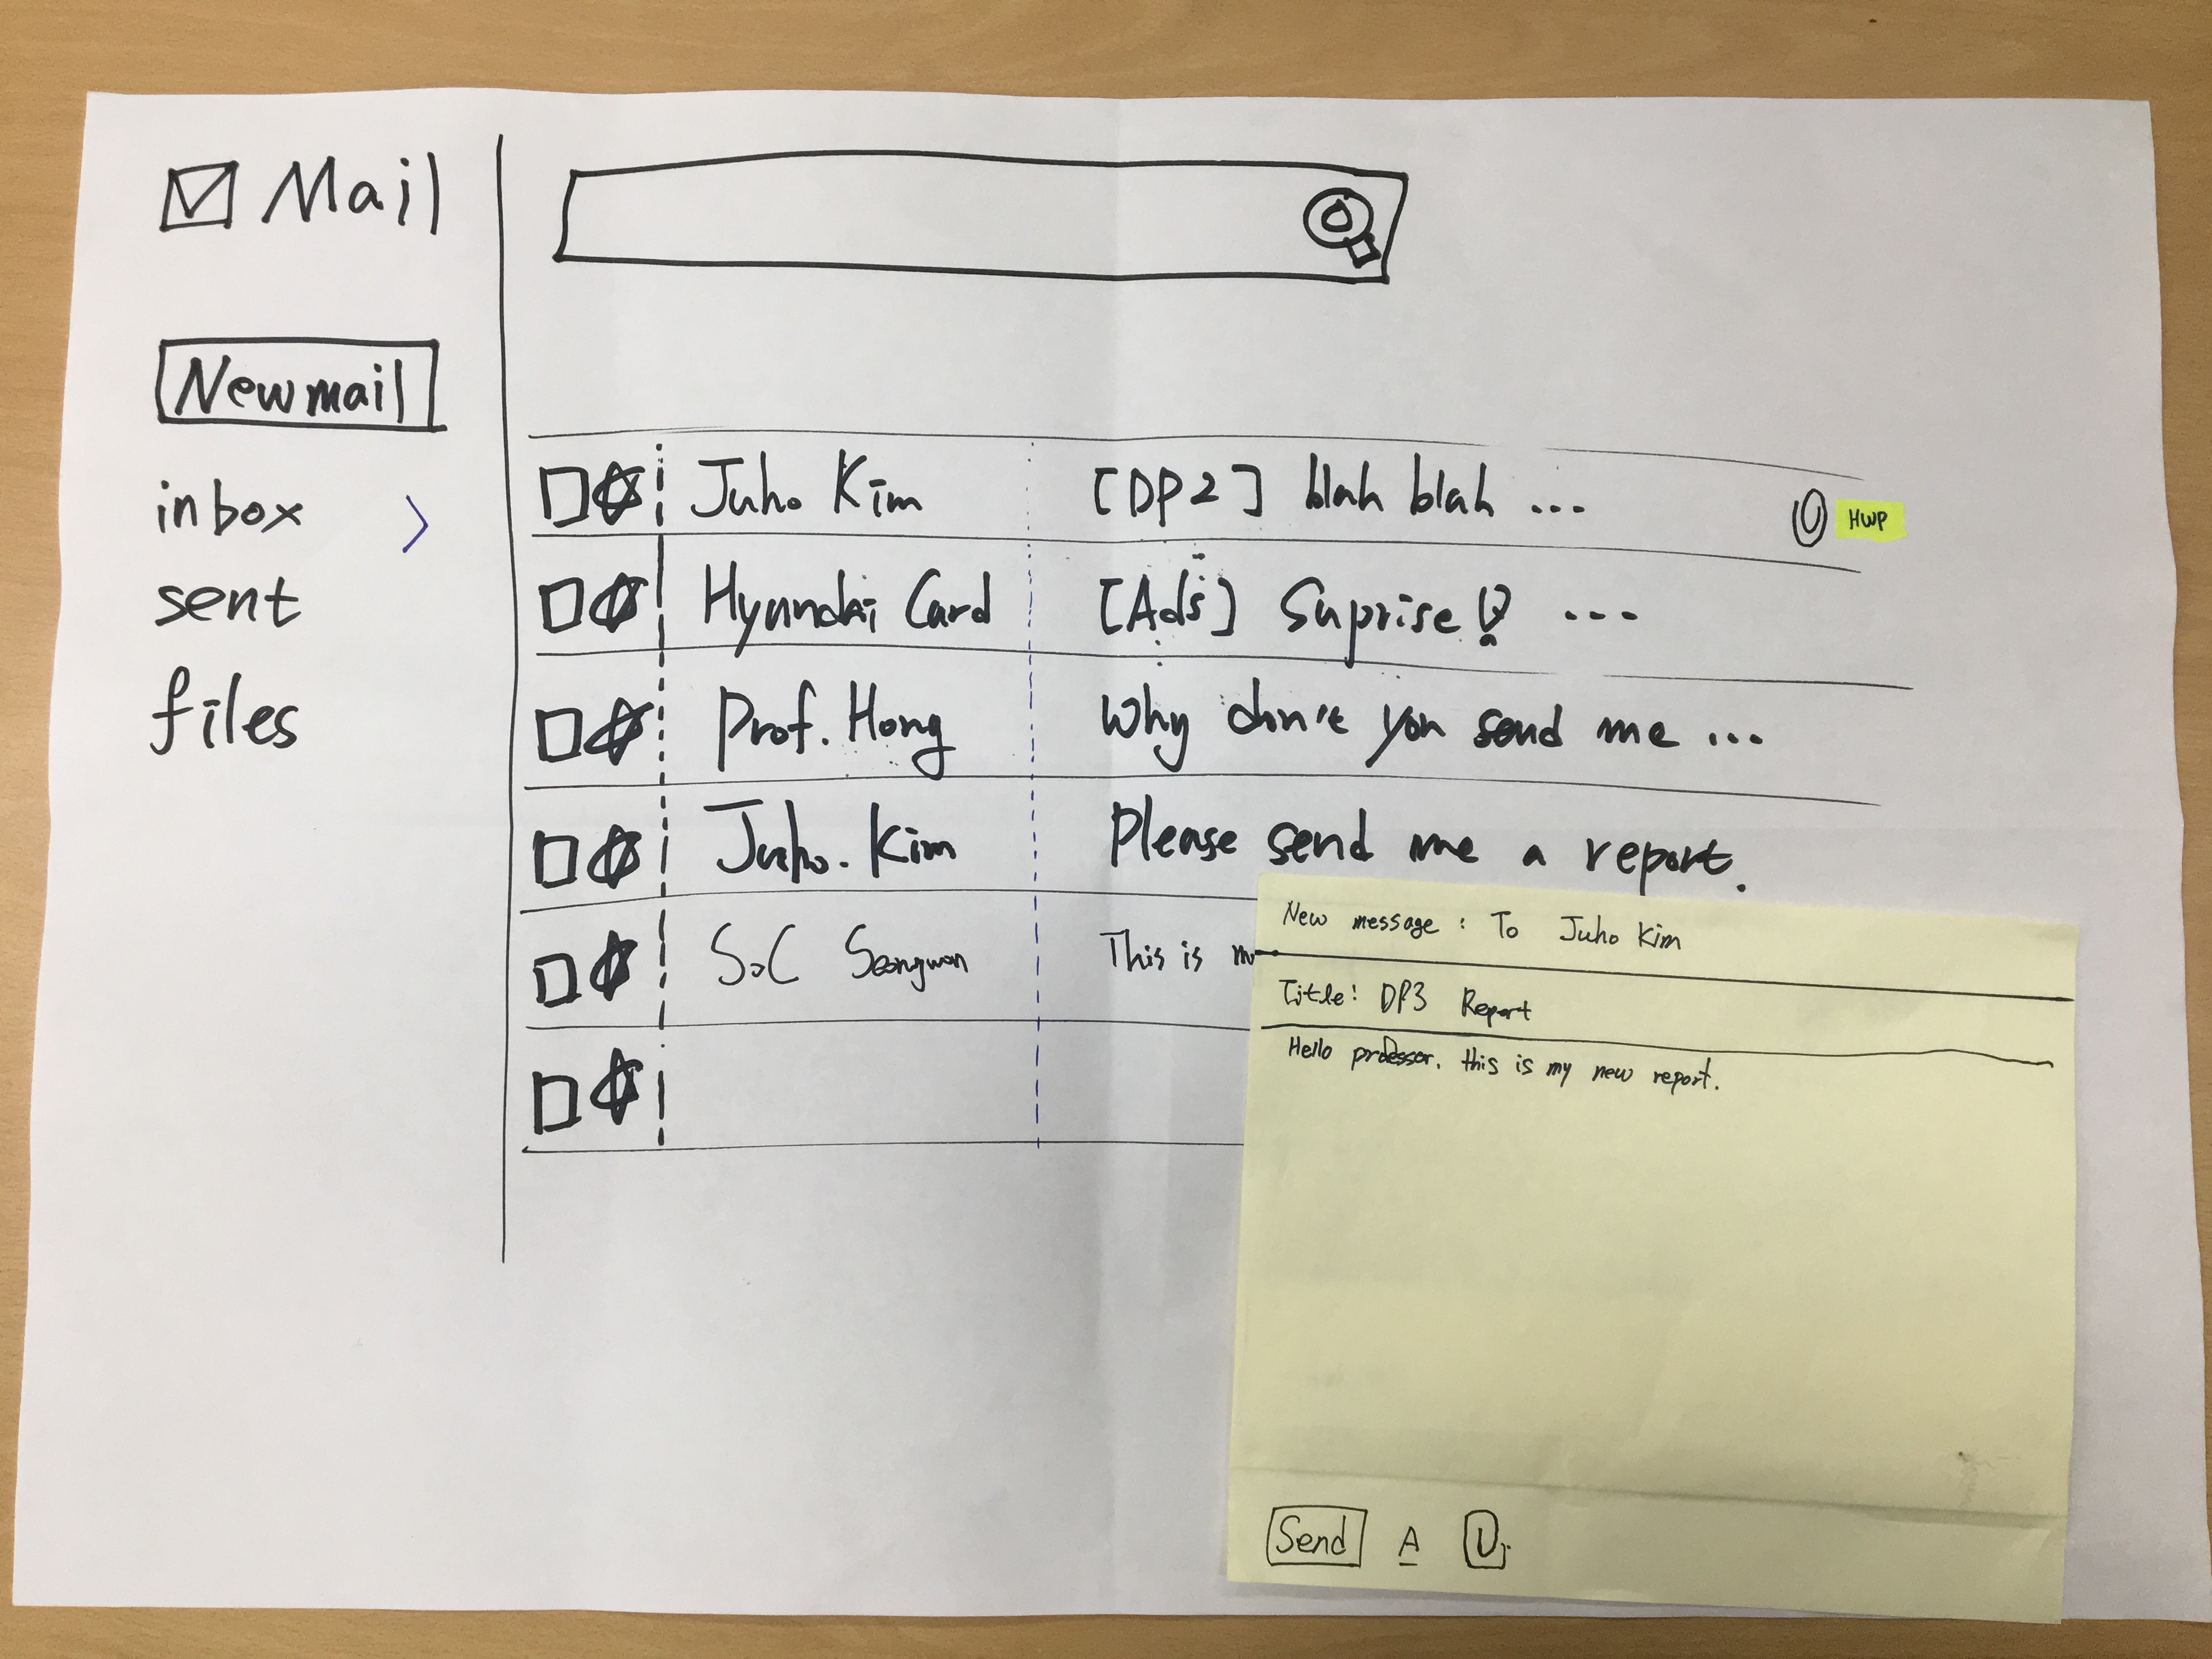 Mail
New mail
inbox >
sent
files
Juho Kim [DP2] blah blah ... HWP
Hyundai Card [Ads] Suprise! ...
Prof. Hong Why don't you send me ...
Juho. Kim Please send me a report.
SoC Seongwon This is m
New message : To Juho Kim
Title: DP3 Report
Hello professor. this is my new report.
Send A